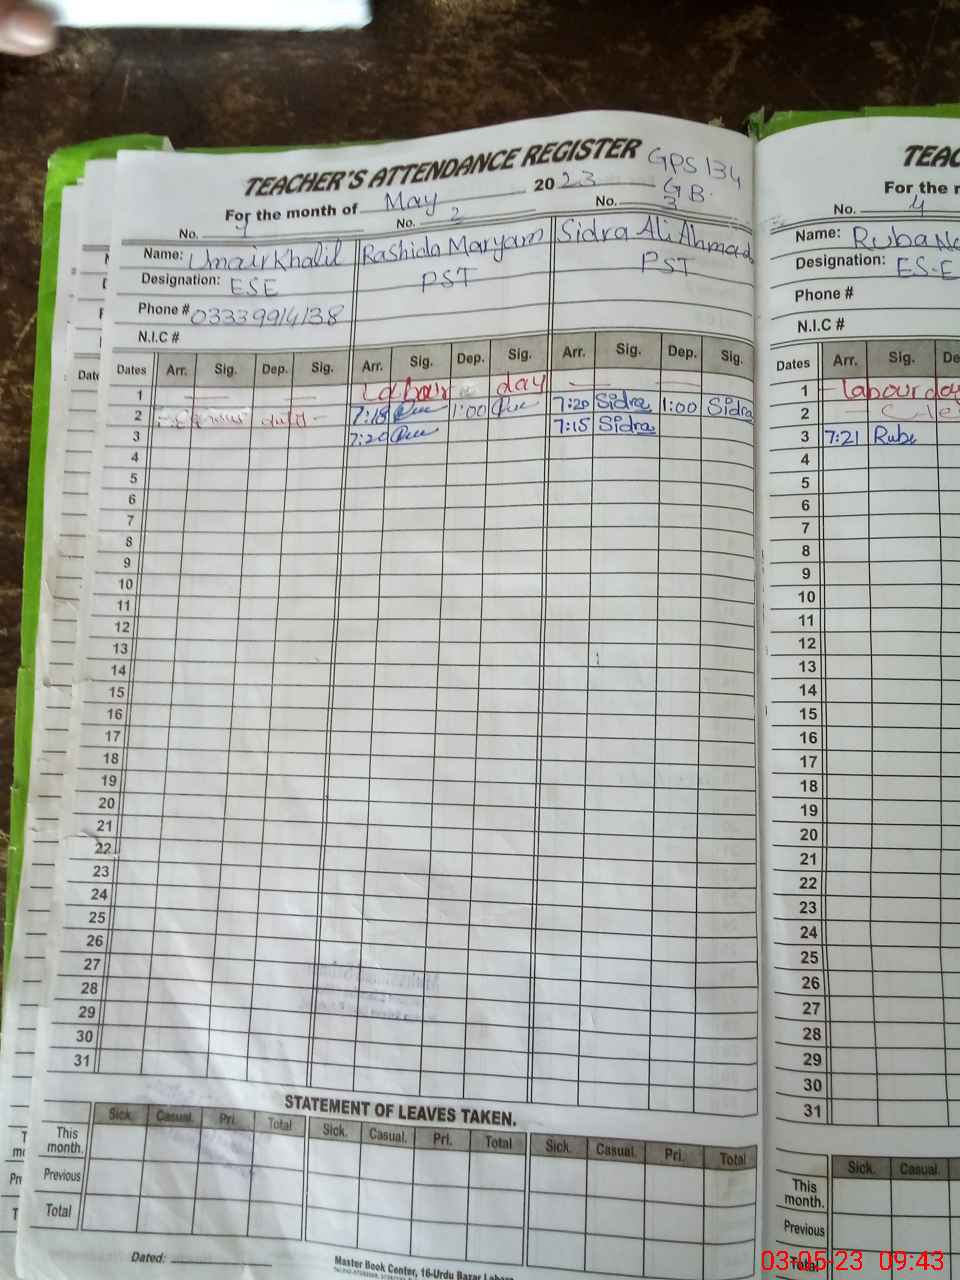 TEACHER'S ATTENDANCE REGISTER GPS 134
For the month of May 2023 GB.
No. 1 No. 2 No. 3
Name: Umair Khalil Rashida Maryam Sidra Ali Ahmad
Designation: ESE PST PST
Phone # 03339914138
N.I.C #
Dates Arr. Sig. Dep. Sig. Arr. Sig. Dep. Sig. Arr. Sig. Dep. Sig.
1 Labour day
2 duty 7:18 1:00 7:20 Sidra 1:00 Sidra
3 7:20 7:15 Sidra
4
5
6
7
8
9
10
11
12
13
14
15
16
17
18
19
20
21
22
23
24
25
26
27
28
29
30
31
STATEMENT OF LEAVES TAKEN.
Sick. Casual. Pri. Total Sick. Casual. Pri. Total Sick. Casual. Pri. Total
This month.
Previous
Total
Dated:
Master Book Center, 16-Urdu Bazar Lahore
TEAC
For the m
No. 4
Name: Ruba Na
Designation: ES-E
Phone #
N.I.C #
Dates Arr. Sig. De
1 Labour day
2
3 7:21 Ruba
4
5
6
7
8
9
10
11
12
13
14
15
16
17
18
19
20
21
22
23
24
25
26
27
28
29
30
31
Sick. Casual.
This month.
Previous
Total
03-05-23 09:43